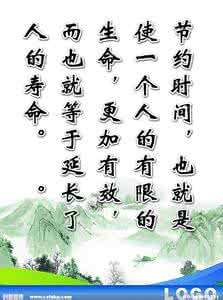 节约时间，也就是
使一个人的有限的
生命，更加有效，
而也就等于延长了
人的寿命。 。
LOGO